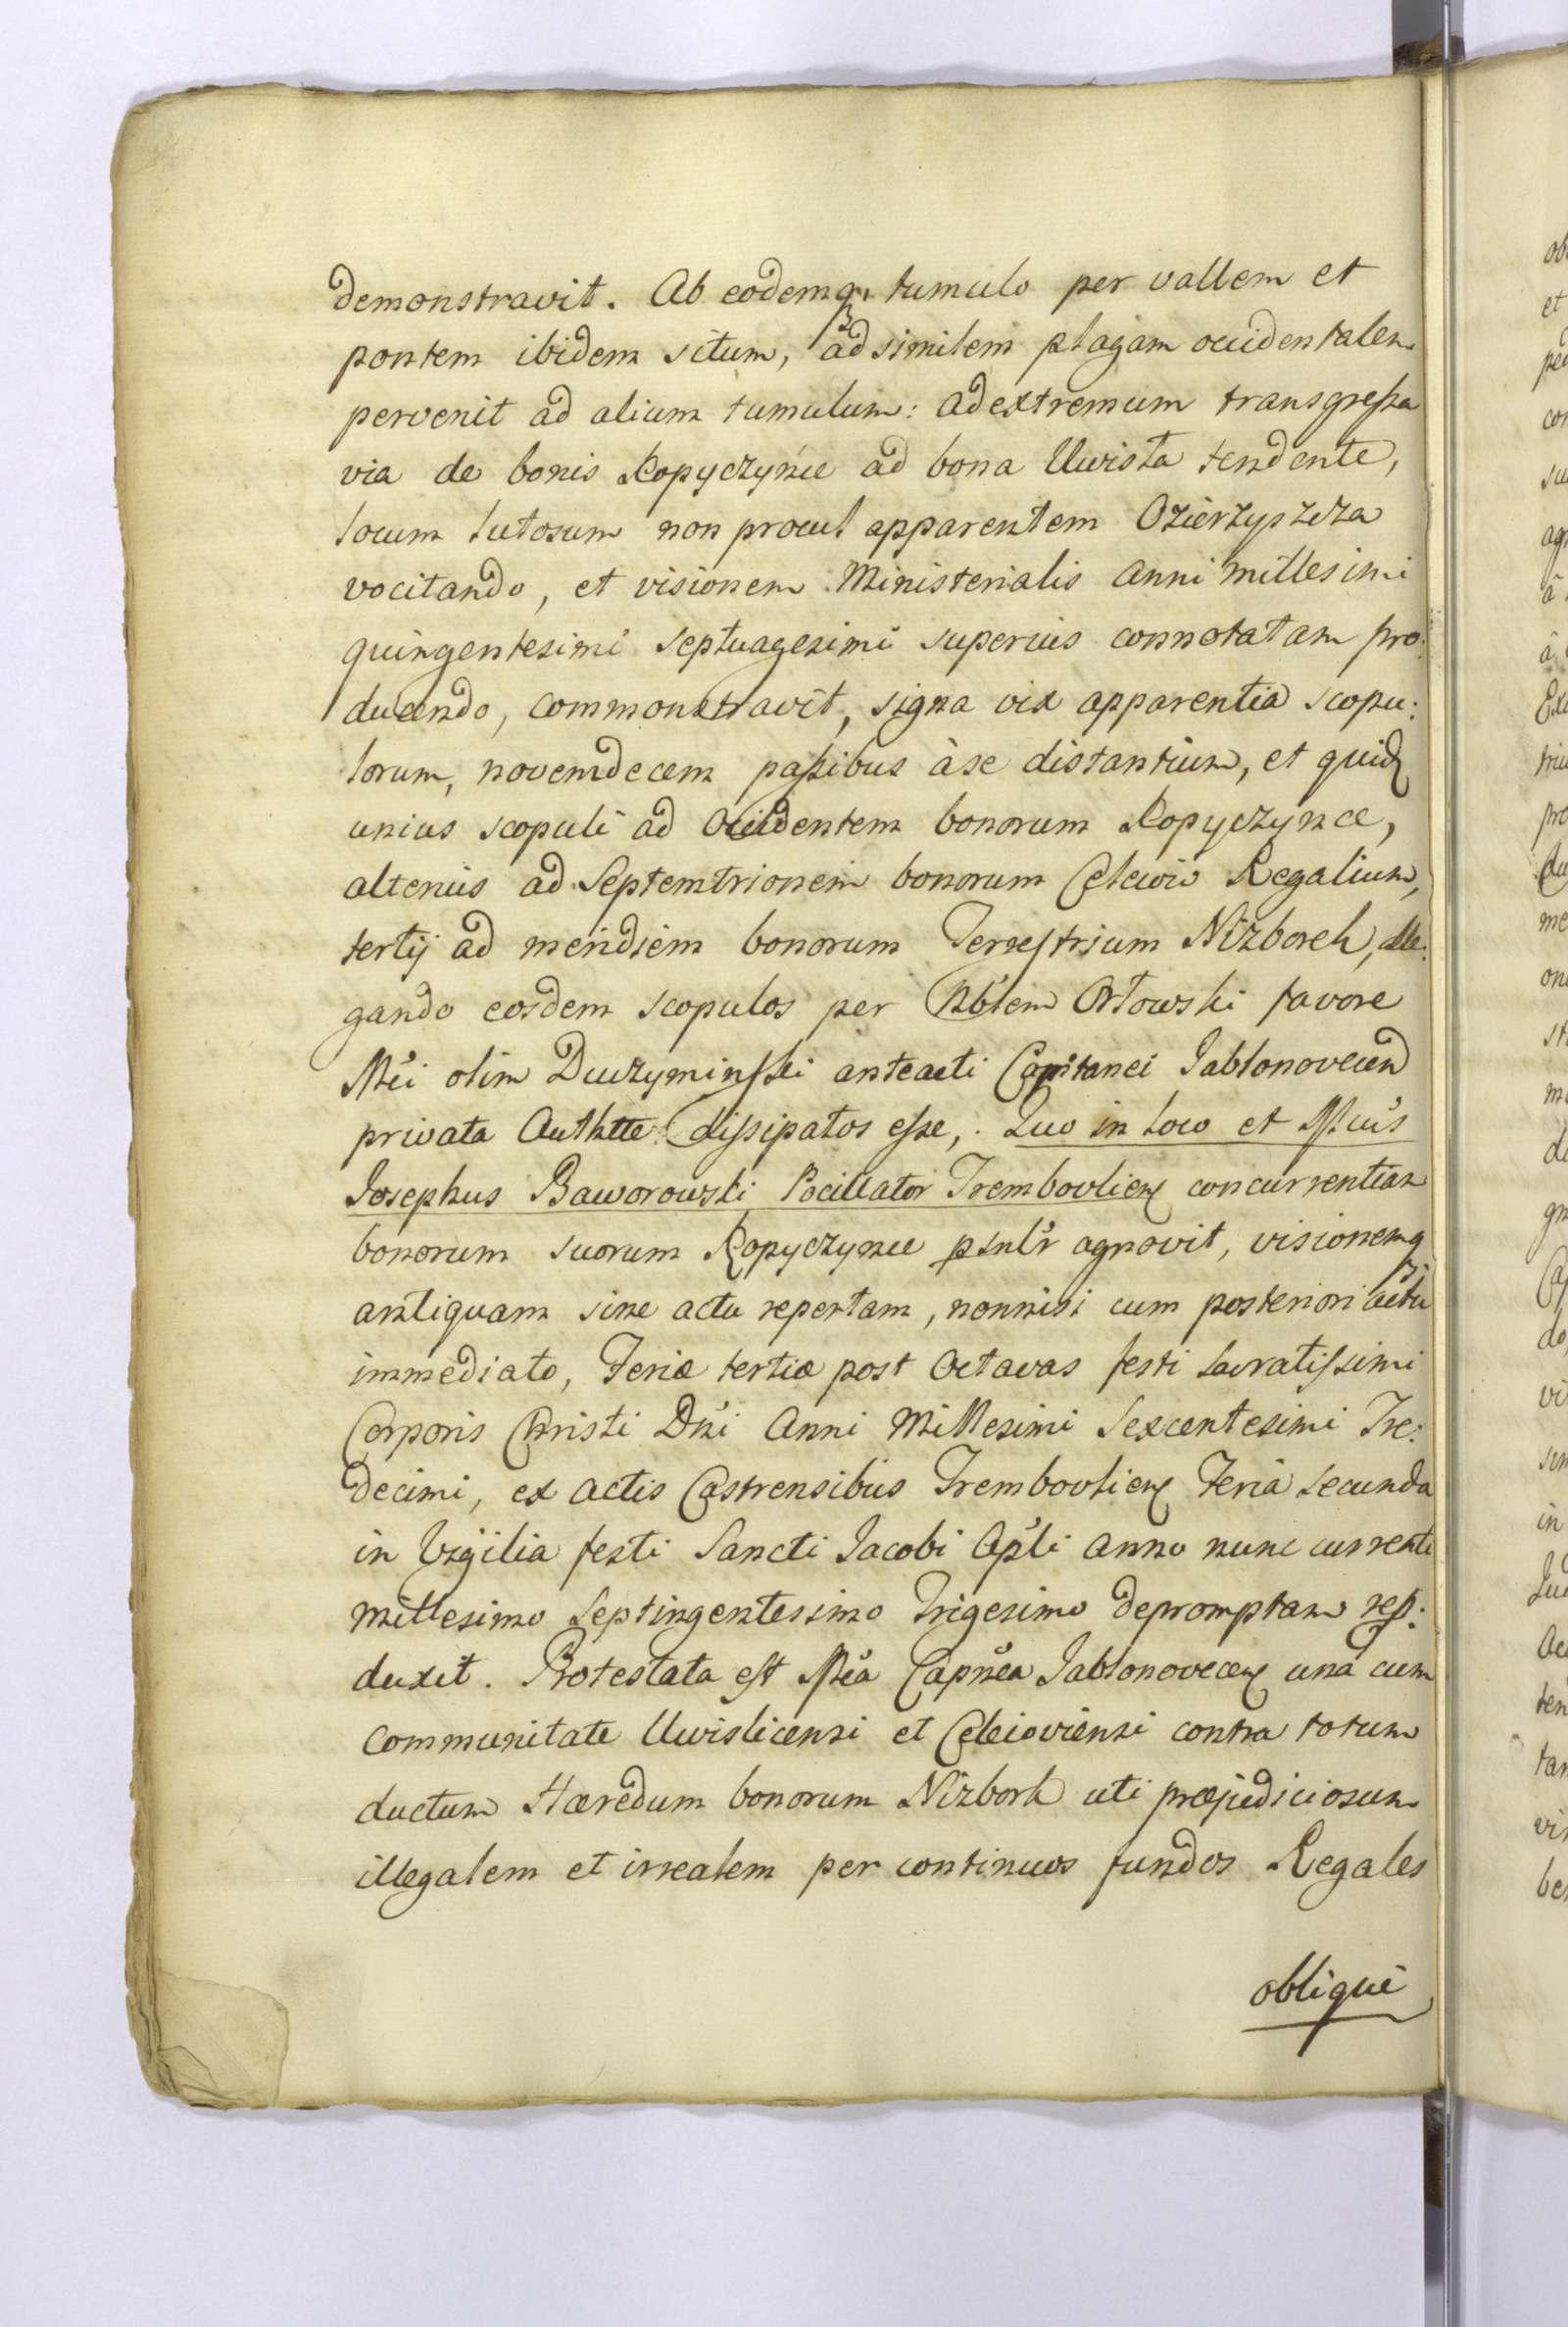 demonstravit. Ab eodemq; tumulo per vallem et
pontem ibidem situm, ad similem plagam occidentalem
pervenit ad alium tumulum: ad extremum transgressa
via de bonis Kopyczyńce ad bona Uwisła tendente,
locum lutosum non procul apparentem Ozierzyszcza
vocitando, et visionem Ministerialis Anni Millesimi
quingentesimi Septuagesimi superius connotatam pro:
ducendo, commonstravit, signa vix apparentia scopu:
lorum, novemdecem passibus à se distantium, et quidẽ
unius scopuli ad Occidentem bonorum Kopyczynce,
alterius ad Septemtrionem bonorum Celeiow Regalium,
tertij ad meridiem bonorum Terrestrium Nizboreh, alle:
gando eosdem scopulos per Nb̃lem Orłowski favore
Mĩci olim Duczyminski anteacti Capitanei Jablonovecen
privata Authtte dissipatos esse, . Quo in loco et Mcus
Josephus Baworowski Pocillator Trembovlien concurrentiam
bonorum suorum Kopyczynce psnlr agnovit, visionemq;
antiquam sine actu repertam, nonnisi cum posteriori actu
immediato, Feriæ tertiæ post Octavas festi Sacratissimi
Corporis Christi Dñi Anni Millesimi Sexcentesimi Tre:
decimi, ex Actis Castrensibus Trembovlien Feria secunda
in Vigilia festi Sancti Jacobi Apli Anno nunc currente
Millesimo Septingentesimo Trigesimo depromptam rep:
duxit. Protestata est Mcà Capnea Jablonovecen unà cum
Communitate Uwislicensi et Celeioviensi contra totum
ductum Hæredum bonorum Nizborh uti præjudiciosum
illegalem et irrealem per continuos fundos Regales
obliqué